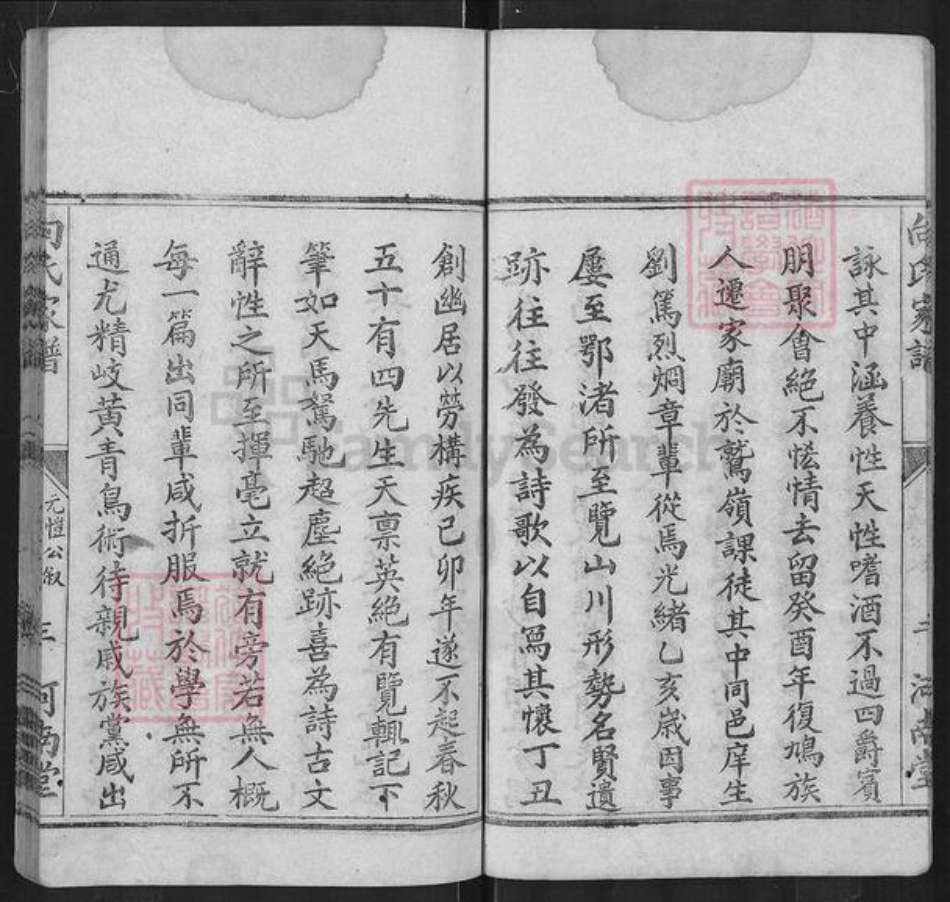 詠其中涵養性天性嗜酒不過四爵賓
朋聚會絕不恡情去留癸酉年復鳩族
人遷家廟於鷲嶺課徒其中同邑庠生
劉篤烈炯章輩從焉光緒乙亥歲因事
屢至鄂渚所至覽山川形勢名賢遺
跡往往發為詩歌以自寫其懷丁丑
創幽居以勞構疾己卯年遂不起春秋
五十有四先生天禀英絕有覽輒記下
筆如天馬駑馳超塵絕跡喜為詩古文
辭性之所至揮毫立就有旁若無人概
每一篇出同輩咸折服焉於學無所不
通尤精岐黃青鳥術待親戚族黨咸出
向氏家譜
元愷公叙
三
河南堂
FamilySearch